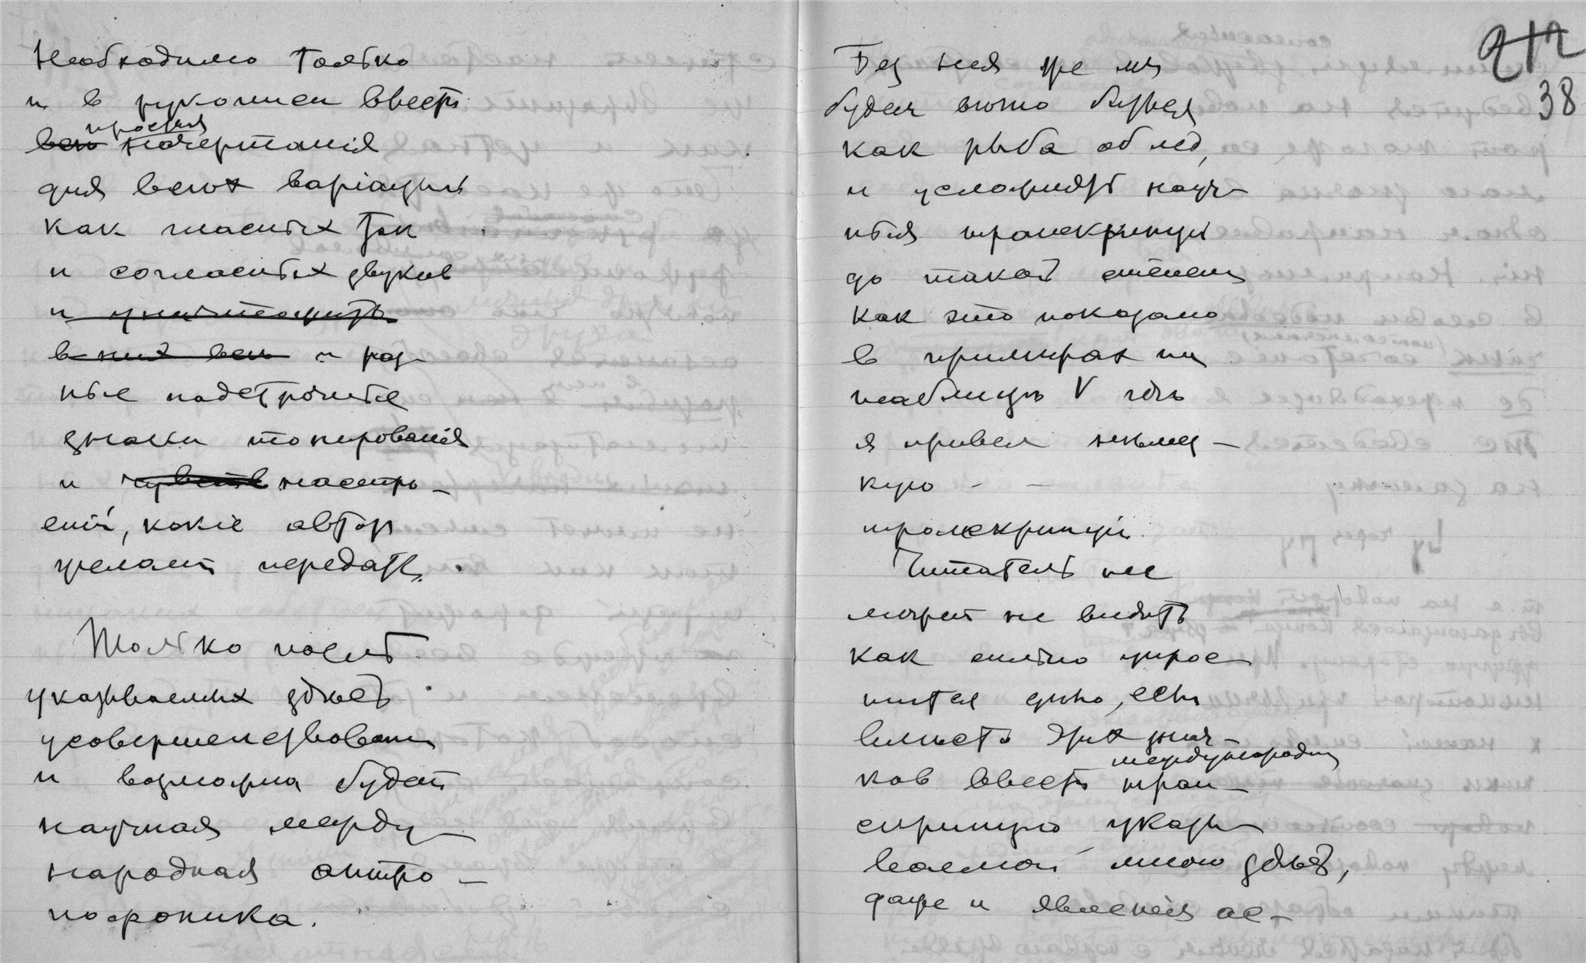 Необходимо только
и в рукописи ввести
простыя
всю начертанія
для всѣх варіацій
как гласных так
и согласных звуков
и уничтожить
в них всю и раз
ные надстрочные
знаки тонированія
и чувств настро-
еній, какіе автор
желает передать.
Только послѣ
указываемых здѣсь
усовершенствованій
и возможна будет
научная между-
народная антро-
пофоника.
212
38
Без нея же мы
будем вѣчно биться
как рыба об лед,
и усложнять науч-
ныя транскрипціи
до такой степени
как это показано
в примѣрах на
таблицѣ V гдѣ
я привел нѣмец-
кую - -
транскрипцію.
Читатель не
может не видѣть
как сильно упрос-
тится дѣло, если
вмѣсто этих знач-
международн
ков ввести тран-
скрипцію указы-
ваемую мною здѣсь,
даже и явленія ас-